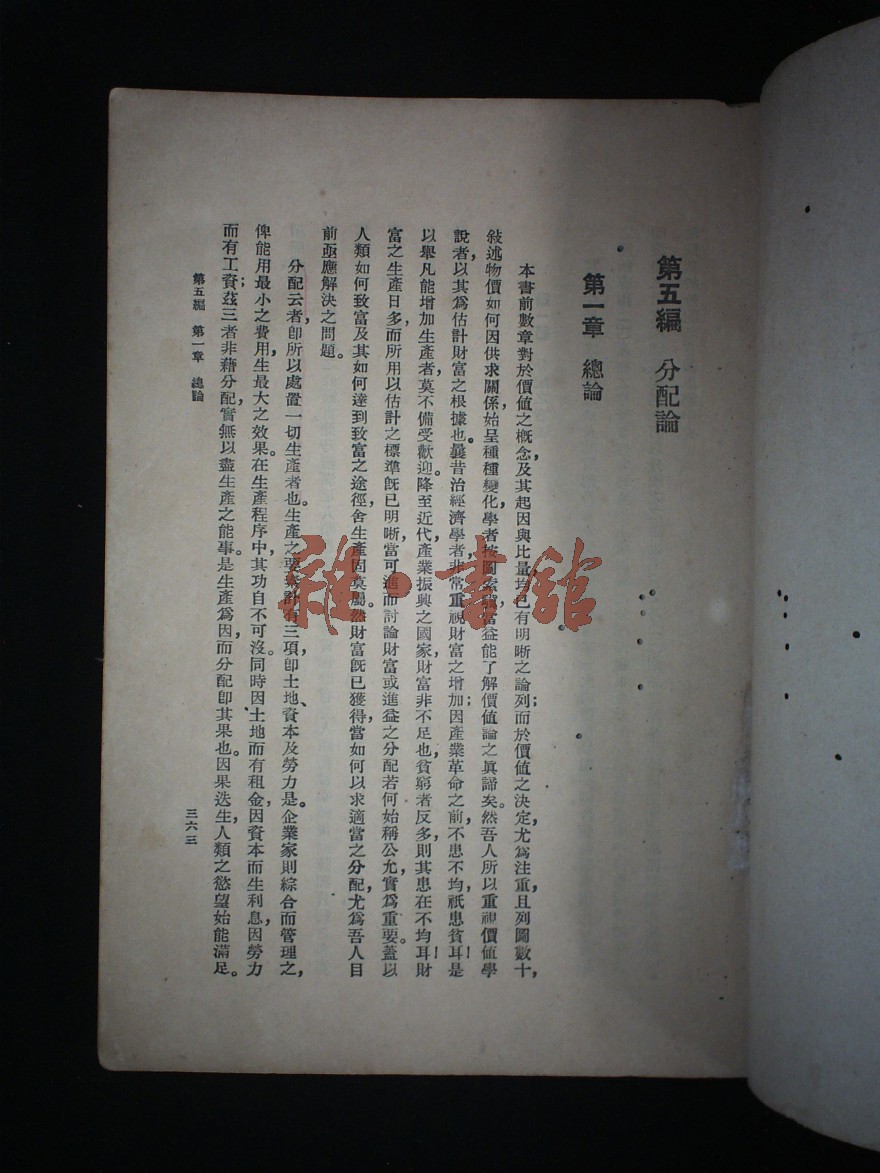 第五編 分配論
第一章 總論
本書前數章對於價值之概念,及其起因與比量均已有明晰之論列;而於價值之決定,尤爲注重,且列圖數十,
敍述物價如何因供求關係,始呈種種變化,學者按圖索 當益能了解價值論之眞諦矣。然吾人所以重視價值學
說者,以其爲估計財富之根據也。曩昔治經濟學者,非常重視財富之增加;因產業革命之前,不患不均,祇患貧耳!是
以舉凡能增加生產者,莫不備受歡迎。降至近代,產業振興之國家,財富非不足也,貧窮者反多,則其患在不均耳!財
富之生產日多,而所用以估計之標準既已明晰,當可進而討論財富或進益之分配若何始稱公允,實爲重要。蓋以
人類如何致富及其如何達到致富之途徑,舍生產固莫屬。然財富既已獲得,當如何以求適當之分配,尤爲吾人目
前亟應解決之問題。
分配云者,卽所以處置一切生產者也。生產之要素計有三項,卽土地、資本及勞力是。企業家則綜合而管理之,
俾能用最小之費用,生最大之效果。在生產程序中,其功自不可沒。同時因土地而有租金,因資本而生利息,因勞力
而有工資;茲三者非藉分配,實無以盡生產之能事。是生產爲因,而分配卽其果也。因果迭生,人類之慾望始能滿足。
第五編 第一章 總論
三六三
雜·書館